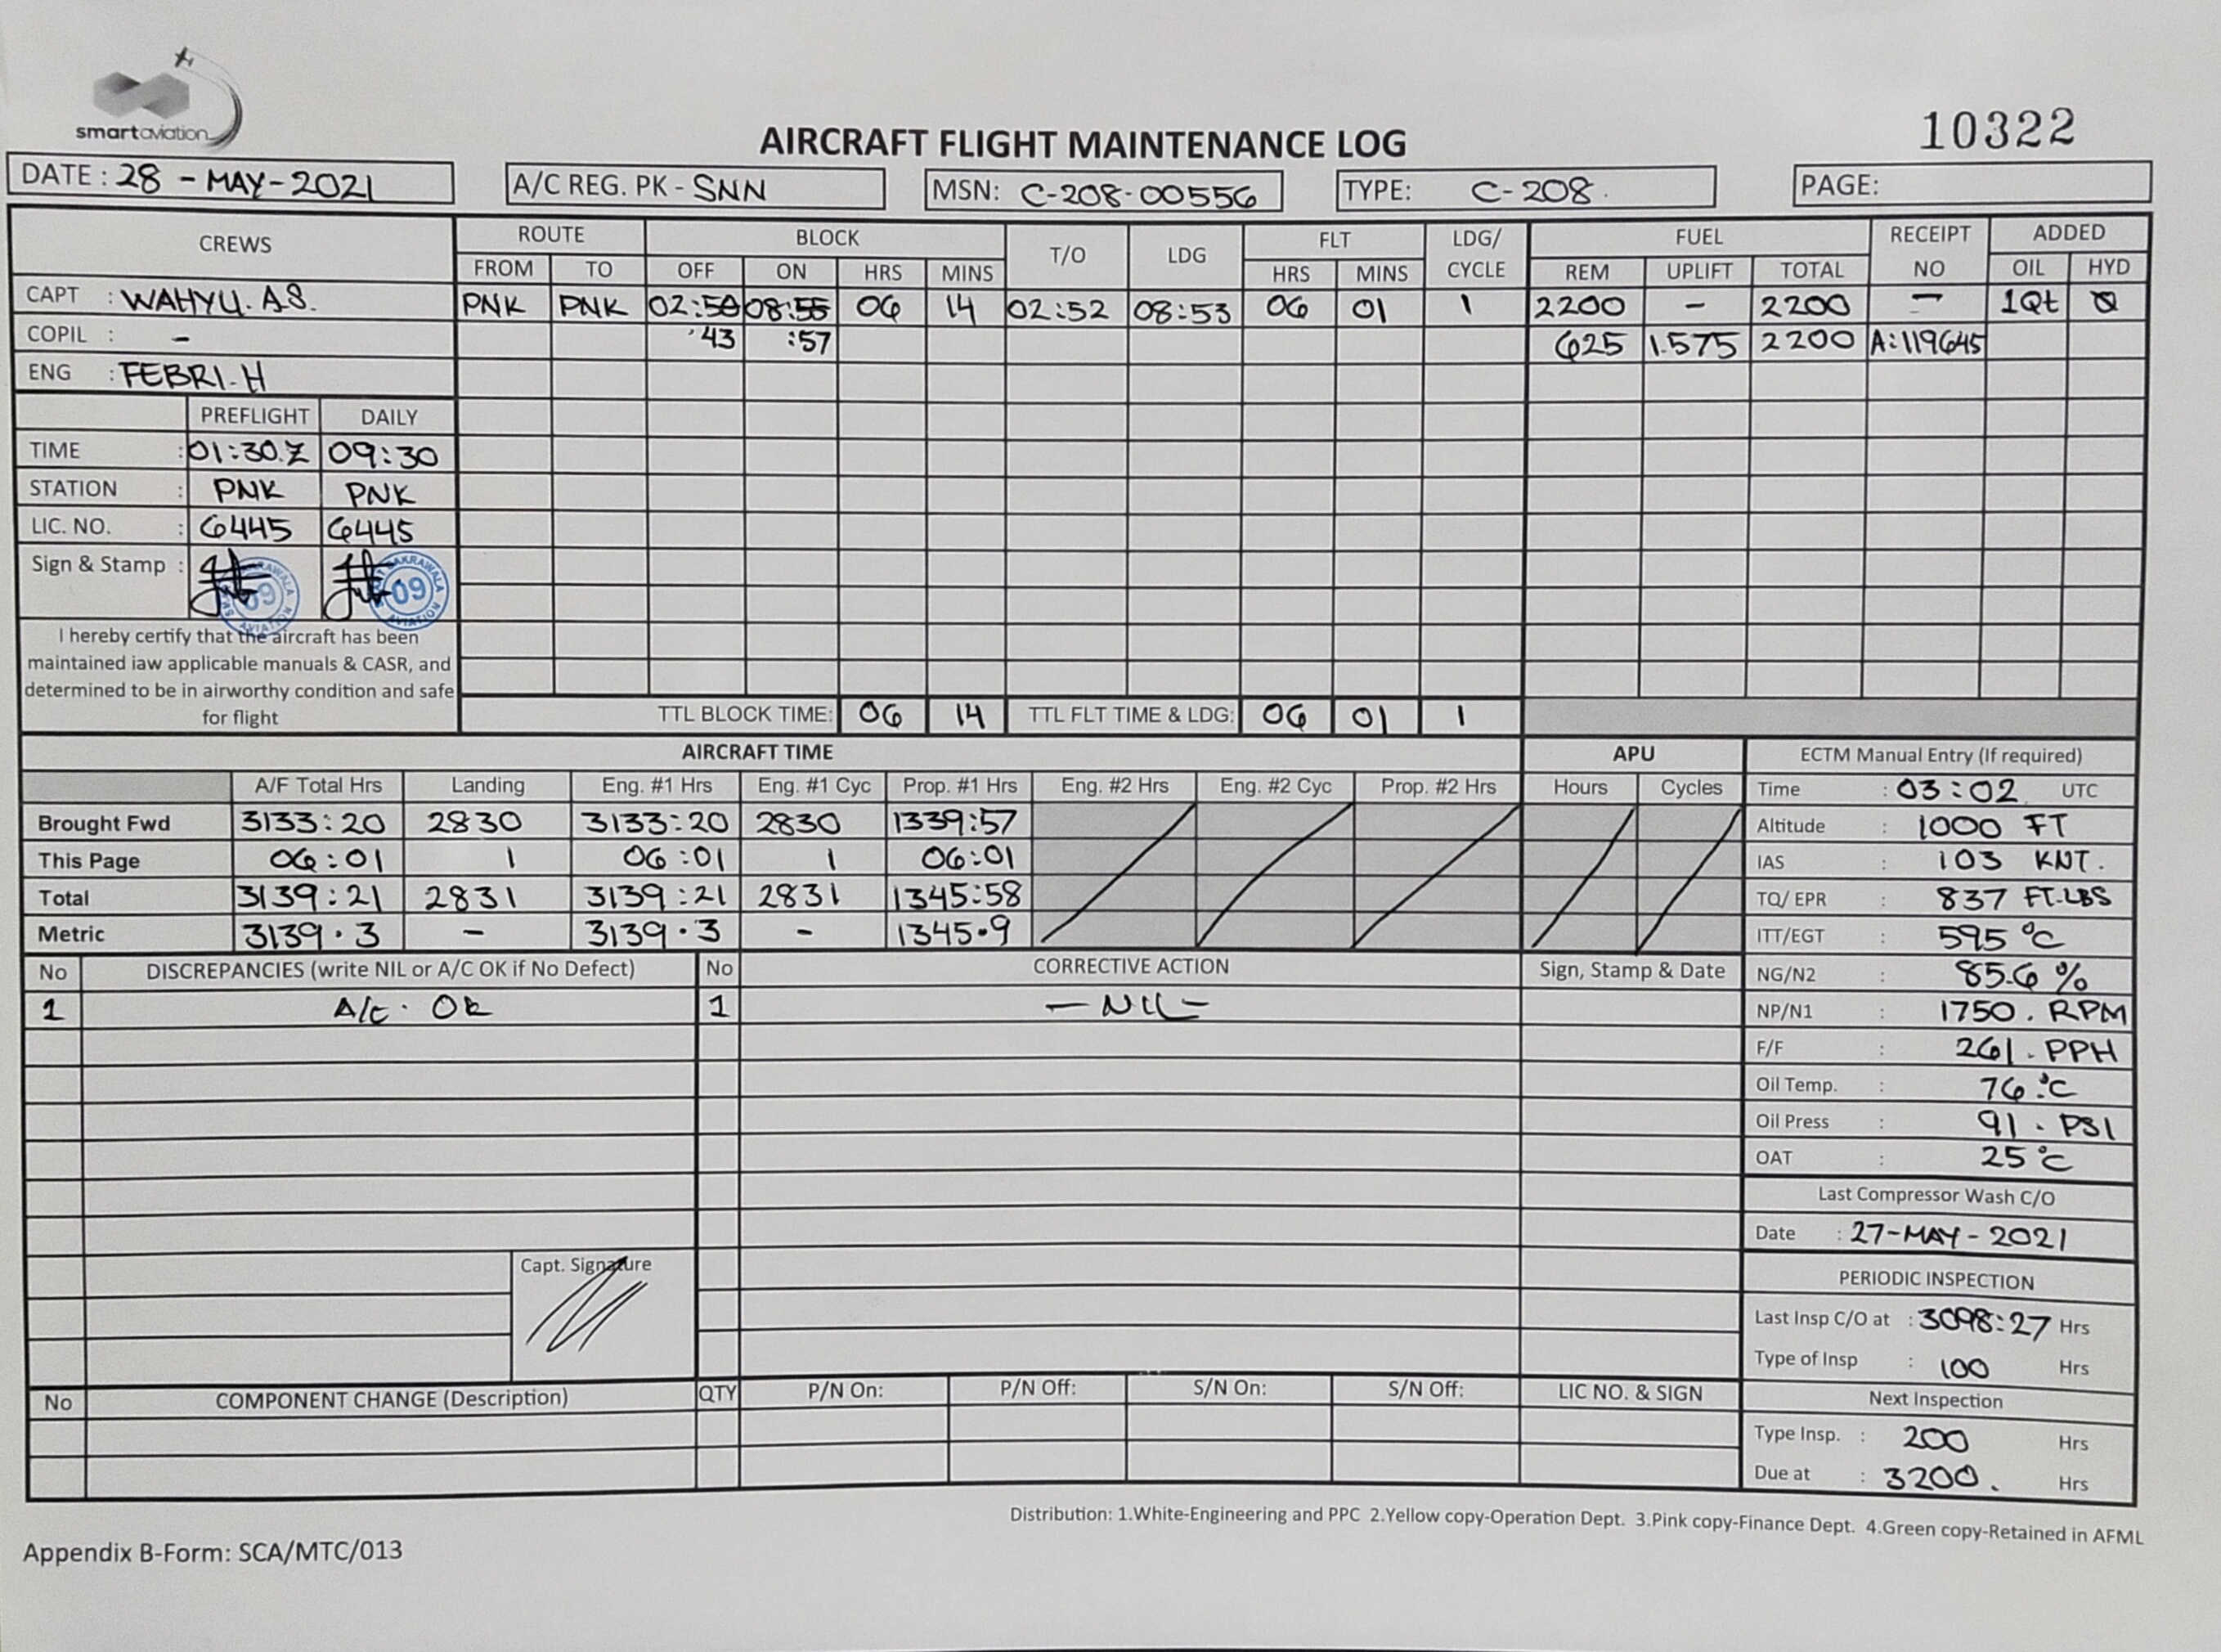 smartaviation
10322
AIRCRAFT FLIGHT MAINTENANCE LOG
DATE : 28 - MAY - 2021
A/C REG. PK - SNN
MSN: C-208-00556
TYPE: C-208.
PAGE:
CREWS ROUTE BLOCK T/O LDG FLT LDG/ CYCLE FUEL RECEIPT NO ADDED
FROM TO OFF ON HRS MINS HRS MINS REM UPLIFT TOTAL OIL HYD
CAPT : WAHYU. A.S. PNK PNK 02:50 08:55 06 14 02:52 08:53 06 01 1 2200 - 2200 - 1Qt Ø
COPIL : - '43 :57 625 1.575 2200 A:119645
ENG : FEBRI.H
PREFLIGHT DAILY
TIME : 01:30.Z 09:30
STATION : PNK PNK
LIC. NO. : 6445 6445
Sign & Stamp : 09 09
AVIATION AVIATION
I hereby certify that the aircraft has been
maintained iaw applicable manuals & CASR, and
determined to be in airworthy condition and safe
for flight
TTL BLOCK TIME: 06 14 TTL FLT TIME & LDG: 06 01 1
AIRCRAFT TIME APU
A/F Total Hrs Landing Eng. #1 Hrs Eng. #1 Cyc Prop. #1 Hrs Eng. #2 Hrs Eng. #2 Cyc Prop. #2 Hrs Hours Cycles
Brought Fwd 3133:20 2830 3133:20 2830 1339:57
This Page 06:01 1 06:01 1 06:01
Total 3139:21 2831 3139:21 2831 1345:58
Metric 3139.3 - 3139.3 - 1345.9
ECTM Manual Entry (If required)
Time : 03:02 UTC
Altitude : 1000 FT
IAS : 103 KNT.
TQ/ EPR : 837 FT.LBS
ITT/EGT : 595 °C
NG/N2 : 85.6 %
NP/N1 : 1750. RPM
F/F : 261. PPH
Oil Temp. : 76.°C
Oil Press : 91. PSI
OAT : 25 °C
Last Compressor Wash C/O
Date : 27-MAY-2021
PERIODIC INSPECTION
Last Insp C/O at : 3098:27 Hrs
Type of Insp : 100 Hrs
Next Inspection
Type Insp. : 200 Hrs
Due at : 3200. Hrs
No DISCREPANCIES (write NIL or A/C OK if No Defect) No CORRECTIVE ACTION Sign, Stamp & Date
1 A/C. OK 1 - NIL -
Capt. Signature
No COMPONENT CHANGE (Description) QTY P/N On: P/N Off: S/N On: S/N Off: LIC NO. & SIGN
Distribution: 1.White-Engineering and PPC 2.Yellow copy-Operation Dept. 3.Pink copy-Finance Dept. 4.Green copy-Retained in AFML
Appendix B-Form: SCA/MTC/013